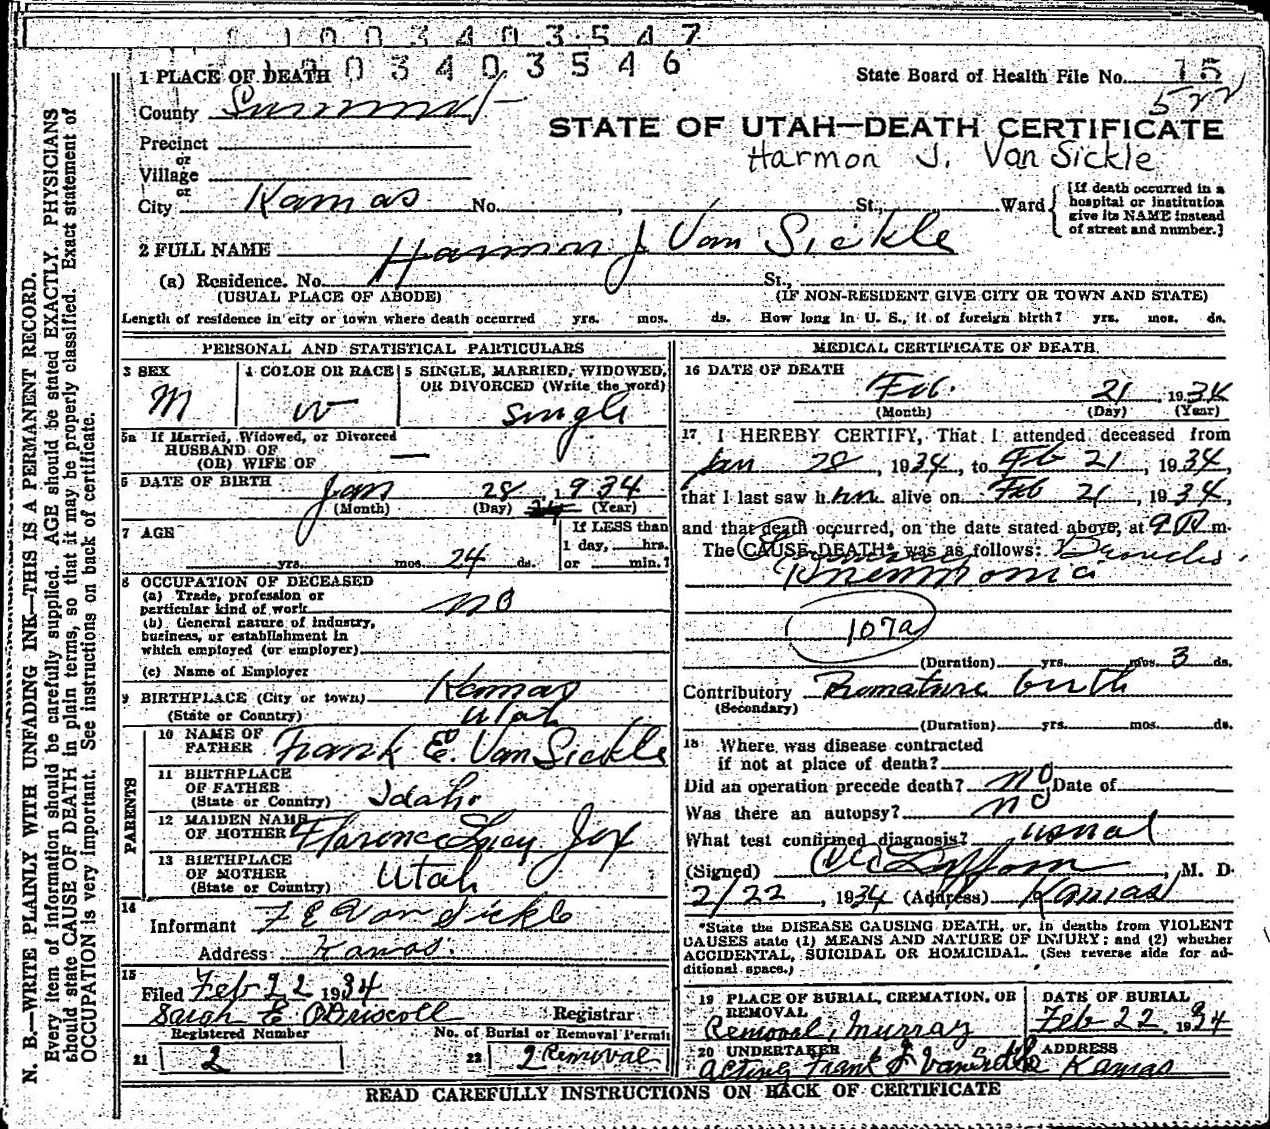 1003403547
1003403546
1 PLACE OF DEATH
State Board of Health File No. 15
County Summit
522
STATE OF UTAH—DEATH CERTIFICATE
Harmon J. Van Sickle
Precinct
or
Village
or
City Kamas No. , St., Ward
[If death occurred in a
hospital or institution
give its NAME instead
of street and number.]
2 FULL NAME Harmon J Van Sickle
(a) Residence. No. St.,
(USUAL PLACE OF ABODE) (IF NON-RESIDENT GIVE CITY OR TOWN AND STATE)
Length of residence in city or town where death occurred yrs. mos. ds. How long in U. S., if of foreign birth? yrs. mos. ds.
PERSONAL AND STATISTICAL PARTICULARS
3 SEX 4 COLOR OR RACE 5 SINGLE, MARRIED, WIDOWED,
OR DIVORCED (Write the word)
M W single
5a If Married, Widowed, or Divorced
HUSBAND OF
(OR) WIFE OF —
6 DATE OF BIRTH Jan 28 1934
(Month) (Day) (Year)
7 AGE If LESS than
1 day, hrs.
yrs. mos. 24 ds. or min.?
8 OCCUPATION OF DECEASED
(a) Trade, profession or
particular kind of work no
(b) General nature of industry,
business, or establishment in
which employed (or employer)
(c) Name of Employer
9 BIRTHPLACE (City or town) Kamas
(State or Country) Utah
PARENTS
10 NAME OF
FATHER Frank E. Van Sickle
11 BIRTHPLACE
OF FATHER
(State or Country) Idaho
12 MAIDEN NAME
OF MOTHER Florence Lucy Fox
13 BIRTHPLACE
OF MOTHER
(State or Country) Utah
14
Informant F E Van Sickle
Address Kamas.
15
Filed Feb 22 1934
Sarah E O'Driscoll Registrar
Registered Number No. of Burial or Removal Permit
21 2 22 2 Removal
MEDICAL CERTIFICATE OF DEATH
16 DATE OF DEATH
Feb. 21, 1934
(Month) (Day) (Year)
17 I HEREBY CERTIFY, That I attended deceased from
Jan 28, 1934, to Feb 21, 1934,
that I last saw him alive on Feb 21, 1934,
and that death occurred, on the date stated above, at 9 m.
The CAUSE DEATH* was as follows:
Pneumonia
107a
(Duration) yrs. mos. 3 ds.
Contributory Premature birth
(Secondary)
(Duration) yrs. mos. ds.
18 Where was disease contracted
if not at place of death?
Did an operation precede death? no Date of
Was there an autopsy? no
What test confirmed diagnosis? usual
(Signed) , M. D.
2/22, 1934 (Address) Kamas
*State the DISEASE CAUSING DEATH, or, in deaths from VIOLENT
CAUSES state (1) MEANS AND NATURE OF INJURY; and (2) whether
ACCIDENTAL, SUICIDAL OR HOMICIDAL. (See reverse side for ad-
ditional space.)
19 PLACE OF BURIAL, CREMATION, OR
REMOVAL
Removal, Murray
DATE OF BURIAL
Feb 22, 1934
20 UNDERTAKER ADDRESS
acting Frank E VanSickle Kamas
READ CAREFULLY INSTRUCTIONS ON BACK OF CERTIFICATE
N. B.—WRITE PLAINLY WITH UNFADING INK—THIS IS A PERMANENT RECORD.
Every item of information should be carefully supplied. AGE should be stated EXACTLY. PHYSICIANS
should state CAUSE OF DEATH in plain terms, so that it may be properly classified. Exact statement of
OCCUPATION is very important. See instructions on back of certificate.